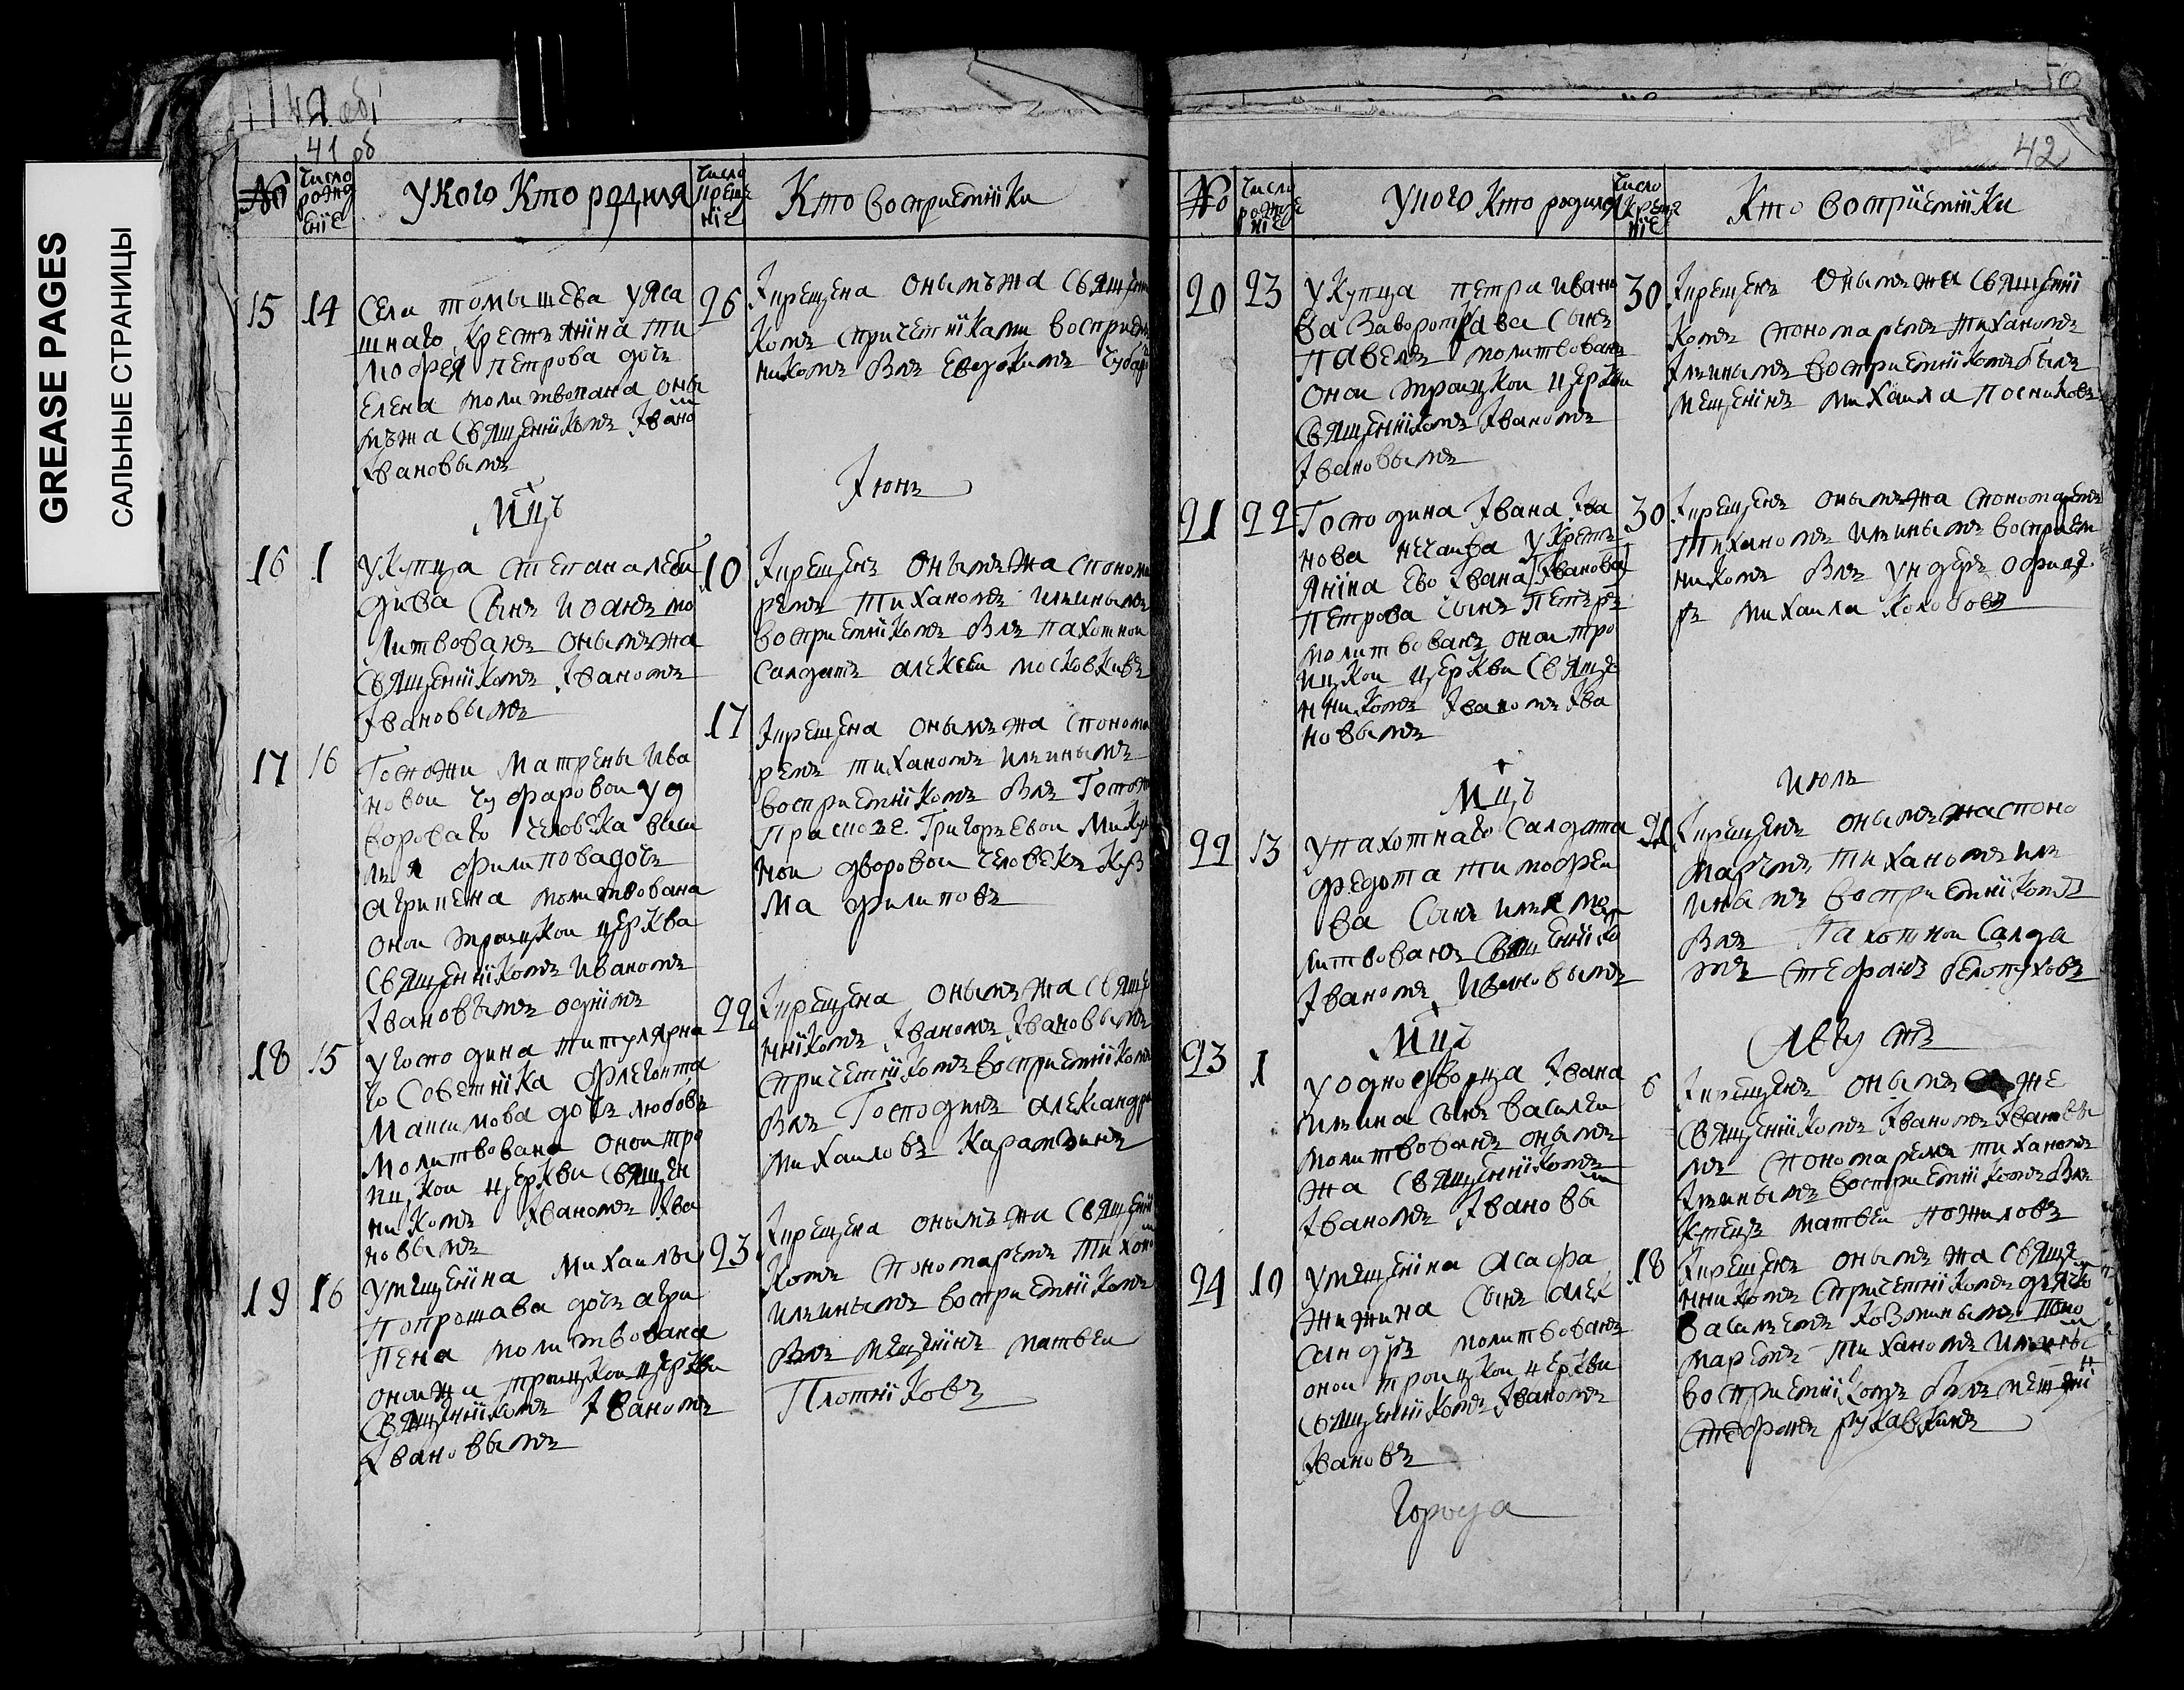 GREASE PAGES
САЛЬНЫЕ СТРАНИЦЫ
42 об
41 об
№
число рожденiе
У кого кто родился
число крещенiе
Кто восприемнiки
15
14
Села томышева уяса
шнаго крестьянiна ти
мофея петрова дочь
Елена молитвована оны
мъжа священнiкомъ Iвано
Iвановымъ
26
Крещена онымъжа священнi
комъ спричетнiками восприем
никомъ былъ Евдокимъ
Мцъ
Iюнь
16
1
У купца степана леби
дива сынъ иоанъ мо
литвованъ онымъжа
священнiкомъ Iваномъ
Iвановымъ
10
Крещенъ онымъжа спонома
ремъ тиханомъ ильинымъ
восприемнiкомъ былъ пахотнои
салдатъ алексеи московкинъ
17
16
Госпожи Матрены Ива
новои чуфаровои у д
вороваго человека васи
лья филиповадочь
агрипена молитвована
онои троицкои церква
священнiкомъ Иваномъ
Iвановымъ однiмъ
17
Крещена онымъжа спонома
ремъ тиханомъ ильинымъ
восприемнiкомъ былъ Госпожи
Григорьевои
нои дворовои человекъ Куз
ма филиповъ
18
15
У господина титулярна
го Советнiка Флегонта
Максимова дочь любовь
молитвована онои тро
ицкои церкви священ
никомъ Iваномъ Iва
новымъ
22
Крещена онымъжа свяще
ннiкомъ Iваномъ Iвановымъ
спричетнiкомъ восприемнiкомъ
былъ Господинъ александръ
михаиловъ Карамзинъ
19
16
У мещенiна Михаилы
дочь агри
пена молитвована
онои жа троицкои церкви
священнiкомъ Iваномъ
Iвановымъ
23
Крещена онымъжа священнi
комъ спономаремъ тихоно
ильинымъ восприемнiкомъ
былъ мещенiнъ матвеи
Плотнiковъ
50
42
№
число рожденiе
У кого кто родился
число крещенiе
Кто восприемнiки
20
23
У купца петра ивано
ва сынъ
павелъ молитвованъ
онои троицкои церкви
священнiкомъ Iваномъ
Iвановымъ
30
Крещенъ онымъжа священнi
комъ спономаремъ тиханомъ
Iльинымъ восприемнiкомъ былъ
мещенiнъ михаила Посниковъ
21
22
Господина Iвана Iва
нова нечаева у крсть
янiна ево Iвана Iванова
Петрова сынъ Петръ
молитвованъ онои тро
ицкои церкви свяще
нникомъ Iваномъ Iва
новымъ
30
Крещенъ онымъжа спономаремъ
тиханомъ ильинымъ восприем
никомъ былъ ундеръ офице
ръ михаила Колобовъ
Мцъ
июль
22
13
У пахотнаго салдата
федота тимофеи
ва сынъ илья мо
литвованъ священнiко
Iваномъ Ивановымъ
21
Крещенъ онымъжаспоно
маремъ тиханомъ иль
инымъ восприемнiкомъ
былъ Пахотнои салда
тъ стефанъ белопуховъ
Мцъ
Августъ
23
1
У однодворца Iвана
ильина сынъ василеи
молитвованъ онымъ
жа священнiкомъ
Iваномъ Iвановы
6
Крещенъ онымъ же
священнiкомъ Iваномъ Iвановы
мъ спономаремъ тиханомъ
Iльинымъ восприемнiкомъ былъ
купецъ матвеи пожиловъ
24
10
У мещенiна асафа
жижина сынъ алек
сандръ молитвованъ
онои троицкои церкви
священнiкомъ Iваномъ
Iвановъ
18
Крещенъ онымъжа свяще
нникомъ спричетнiкомъ дьячко
василемъ козминымъ поно
маремъ тиханомъ ильины
восприемнiкомъ былъ мещенi
стефанъ рукавкинъ